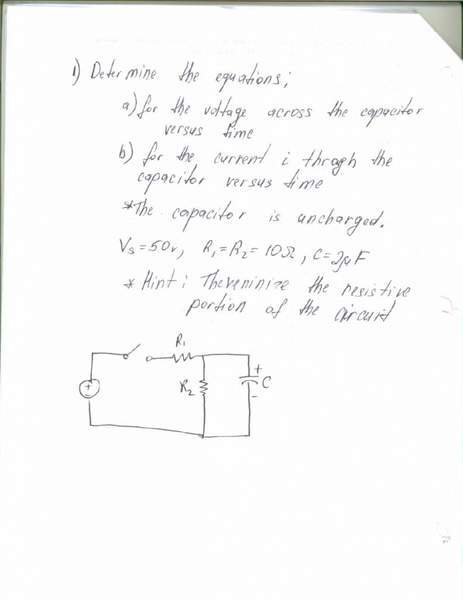 1) Determine the equations;
a) for the voltage across the capacitor
versus time
b) for the current i throgh the
capacitor versus time
*The capacitor is uncharged.
Vs = 50v, R1 = R2 = 10Ω, C = 2μF
* Hint: Theveninize the resistive
portion of the circuit
R1
+
R2
C
+
-